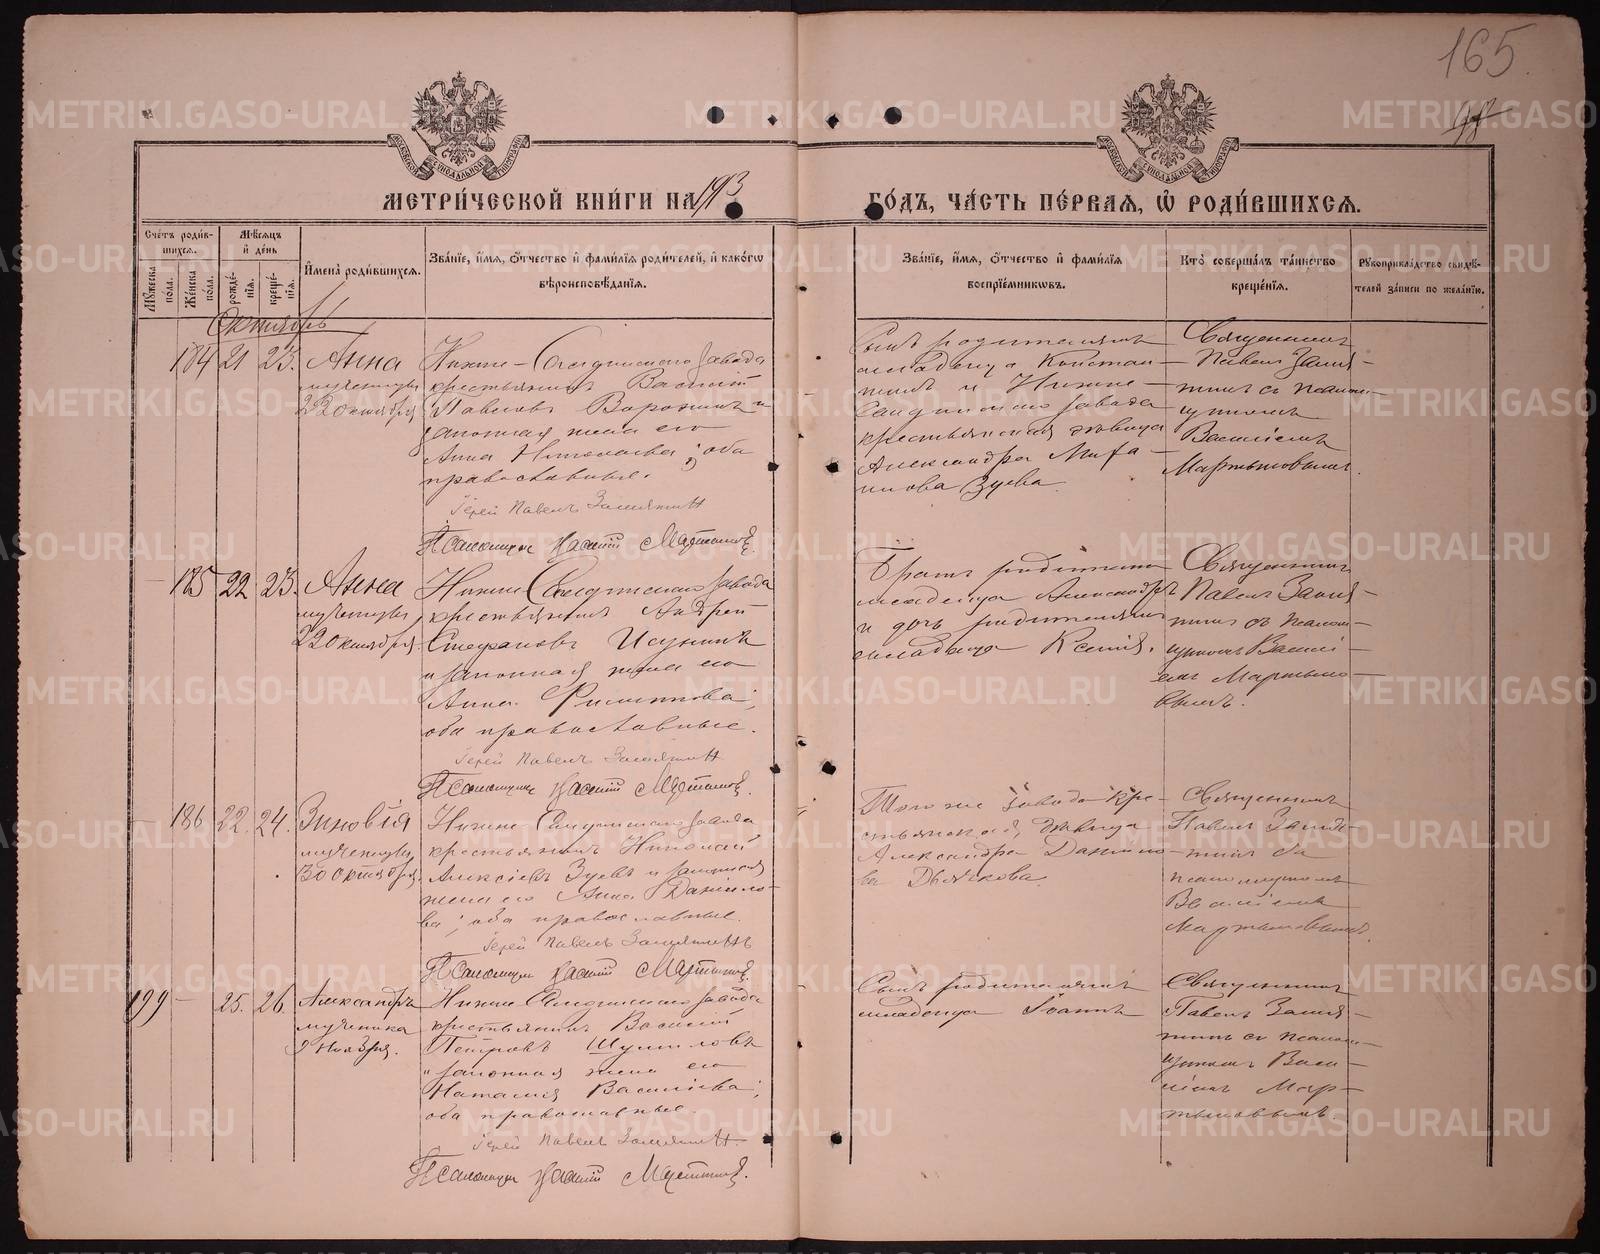 165.
98
МЕТРИ́ЧЕСКОЙ КНИ́ГИ НА 1913
ГО́ДЪ, ЧА́СТЬ ПЕ́РВАЯ, Ѡ РОДИ́ВШИХСЯ.
Сче́тъ роди́вшихся.
Му́жеска по́ла.
Же́нска по́ла.
Мѣ́сяцъ и де́нь
рожде́нія.
креще́нія.
Имена̀ роди́вшихся.
Зва́ніе, и́мя, о́тчество и фами́лія роди́телей, и како́го
вѣроисповѣ́данія.
Зва́ніе, и́мя, о́тчество и фами́лія
воспріе́мниковъ.
Кто̀ соверша́лъ та́инство
креще́нія.
Рукоприкла́дство свидѣ́-
телей за́писи по жела́нію.
Октябрь
184 21 23. Анна
мученицы
22 октября
Нижне-Салдинского завода
крестьянинъ Василій
Павловъ Воронинъ и
законная жена его
Анна Николаева; оба
православные.
Іерей Павелъ Замятин
Псаломщик Василій Мартынов.
Сынъ родителямъ
младенца Констан-
тинъ и Нижне-
Салдинского завода
крестьянская дѣвица
Александра
Зуева.
Священникъ
Павелъ Замя-
тинъ съ псалом-
щикомъ
Василіемъ
Мартыновымъ.
185 22 23. Анна
мученицы
22 октября.
Нижне Салдинского завода
крестьянинъ Андрей
Стефановъ
и законная жена его
Анна Филиппова;
оба православные.
Іерей Павелъ Замятин
Псаломщик Василій Мартынов.
Братъ родителя
младенца Александръ
и дочь родителямъ
младенца Ксенія.
Священникъ
Павелъ Замя-
тинъ съ псалом-
щикомъ Васили-
емъ Мартыно-
вымъ.
186 22. 24. Зиновія
мученицы
30 октября.
Нижне Салдинского завода
крестьянинъ Николай
Алексіевъ Зуевъ и законная
жена его Анна Данило-
ва; оба православные.
Іерей Павелъ Замятинъ
Псаломщик Василій Мартынов.
Того же завода кре-
стьянская дѣвица
Александра Данило-
ва Дьячкова.
Священникъ
Павелъ Замя-
тинъ съ
псаломщикомъ
Василіемъ
Мартыновымъ.
199 25. 26. Александръ
мученика
9 Ноября.
Нижне Салдинского завода
крестьянинъ Василій
Петровъ Шумиловъ
и законная жена его
Наталія Василіева;
оба православные.
Іерей Павелъ Замятин.
Псаломщик Василій Мартынов.
Сынъ родителямъ
младенца Іоаннъ
Священникъ
Павелъ Замя-
тинъ съ псалом-
щикомъ Васи-
ліемъ Мар-
тыновымъ
METRIKI.GASO-URAL.RU